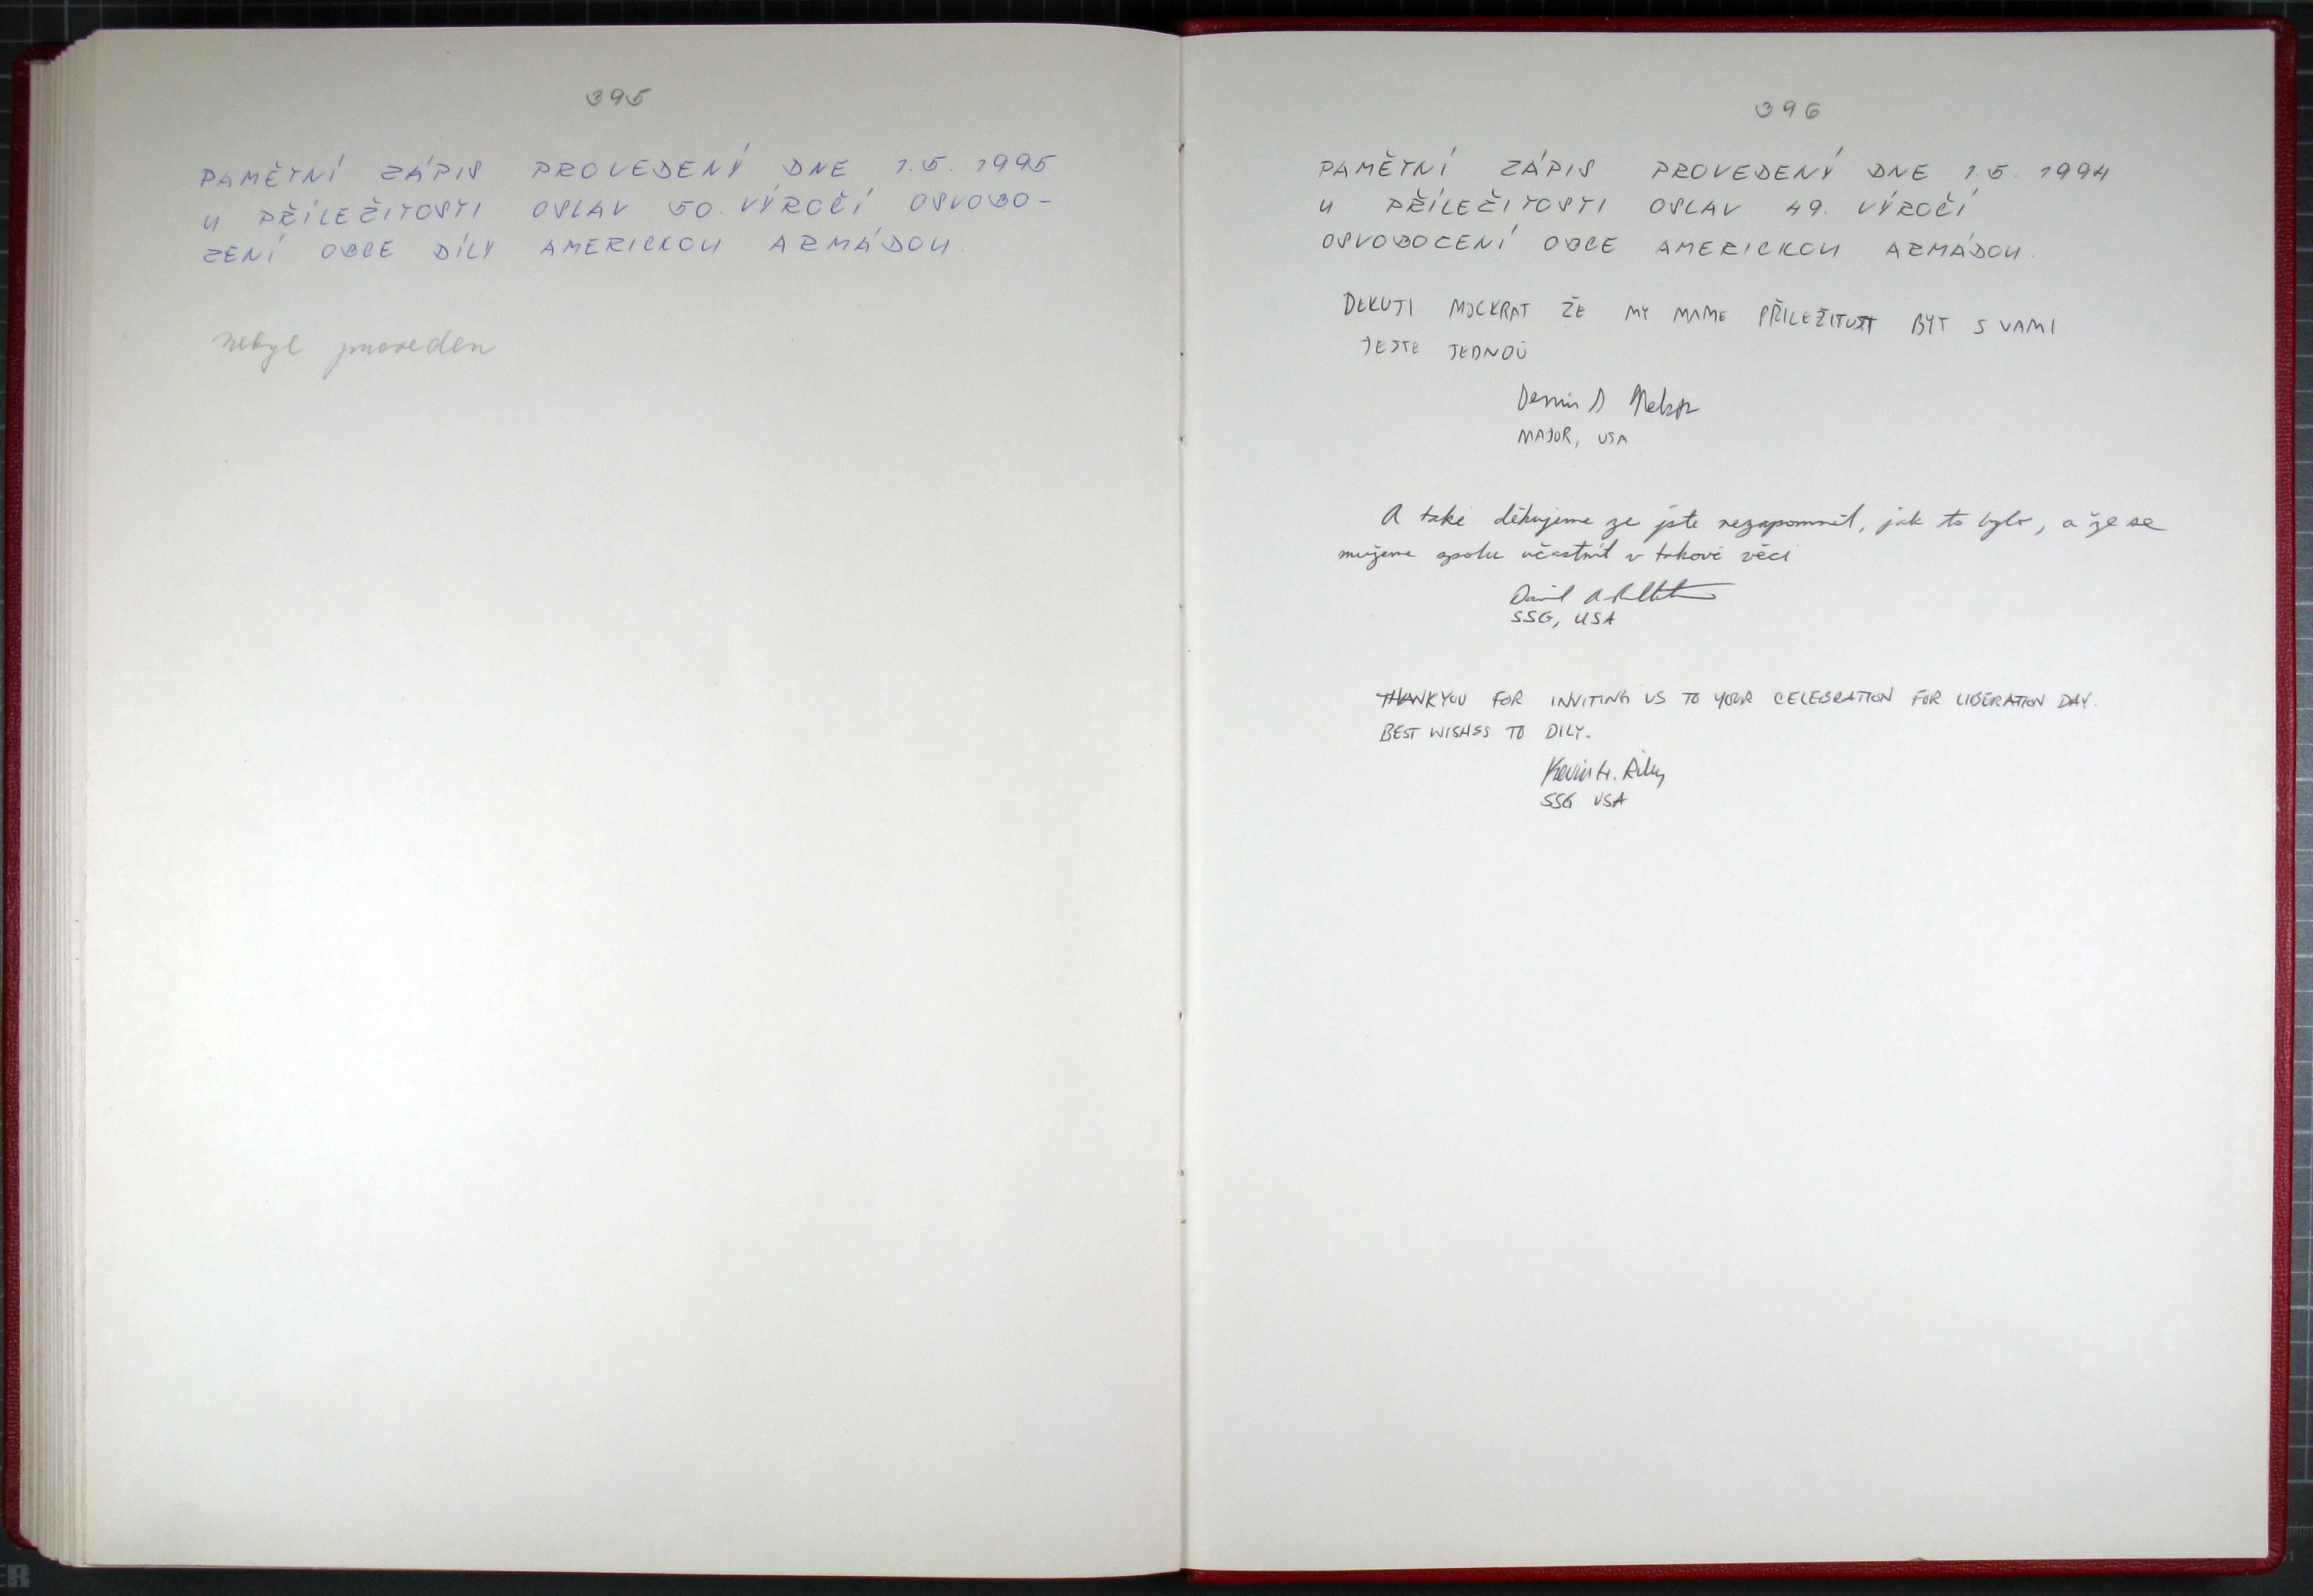 395
PAMĚTNÍ ZÁPIS PROVEDENÝ DNE 1.5. 1995
U PŘÍLEŽITOSTI OSLAV 50. VÝROČÍ OSVOBO-
ZENÍ OBCE DÍLY AMERICKOU ARMÁDOU.
nebyl proveden
396
PAMĚTNÍ ZÁPIS PROVEDENÝ DNE 1.5. 1994
U PŘÍLEŽITOSTI OSLAV 49. VÝROČÍ
OSVOBOZENÍ OBCE AMERICKOU ARMÁDOU.
DEKUJI MOCKRAT ŽE MY MAME PŘILEŽITOST BYT S VAMI
JESTE JEDNOU
Dennis
MAJOR, USA
A také děkujeme ze jste nezapomněl, jak to bylo, a že se
mužeme spolu učastnit v takové věci
David A
SSG, USA
THANK YOU FOR INVITING US TO YOUR CELEBRATION FOR LIBERATION DAY.
BEST WISHES TO DILY.
Kevin Riley
SSG USA